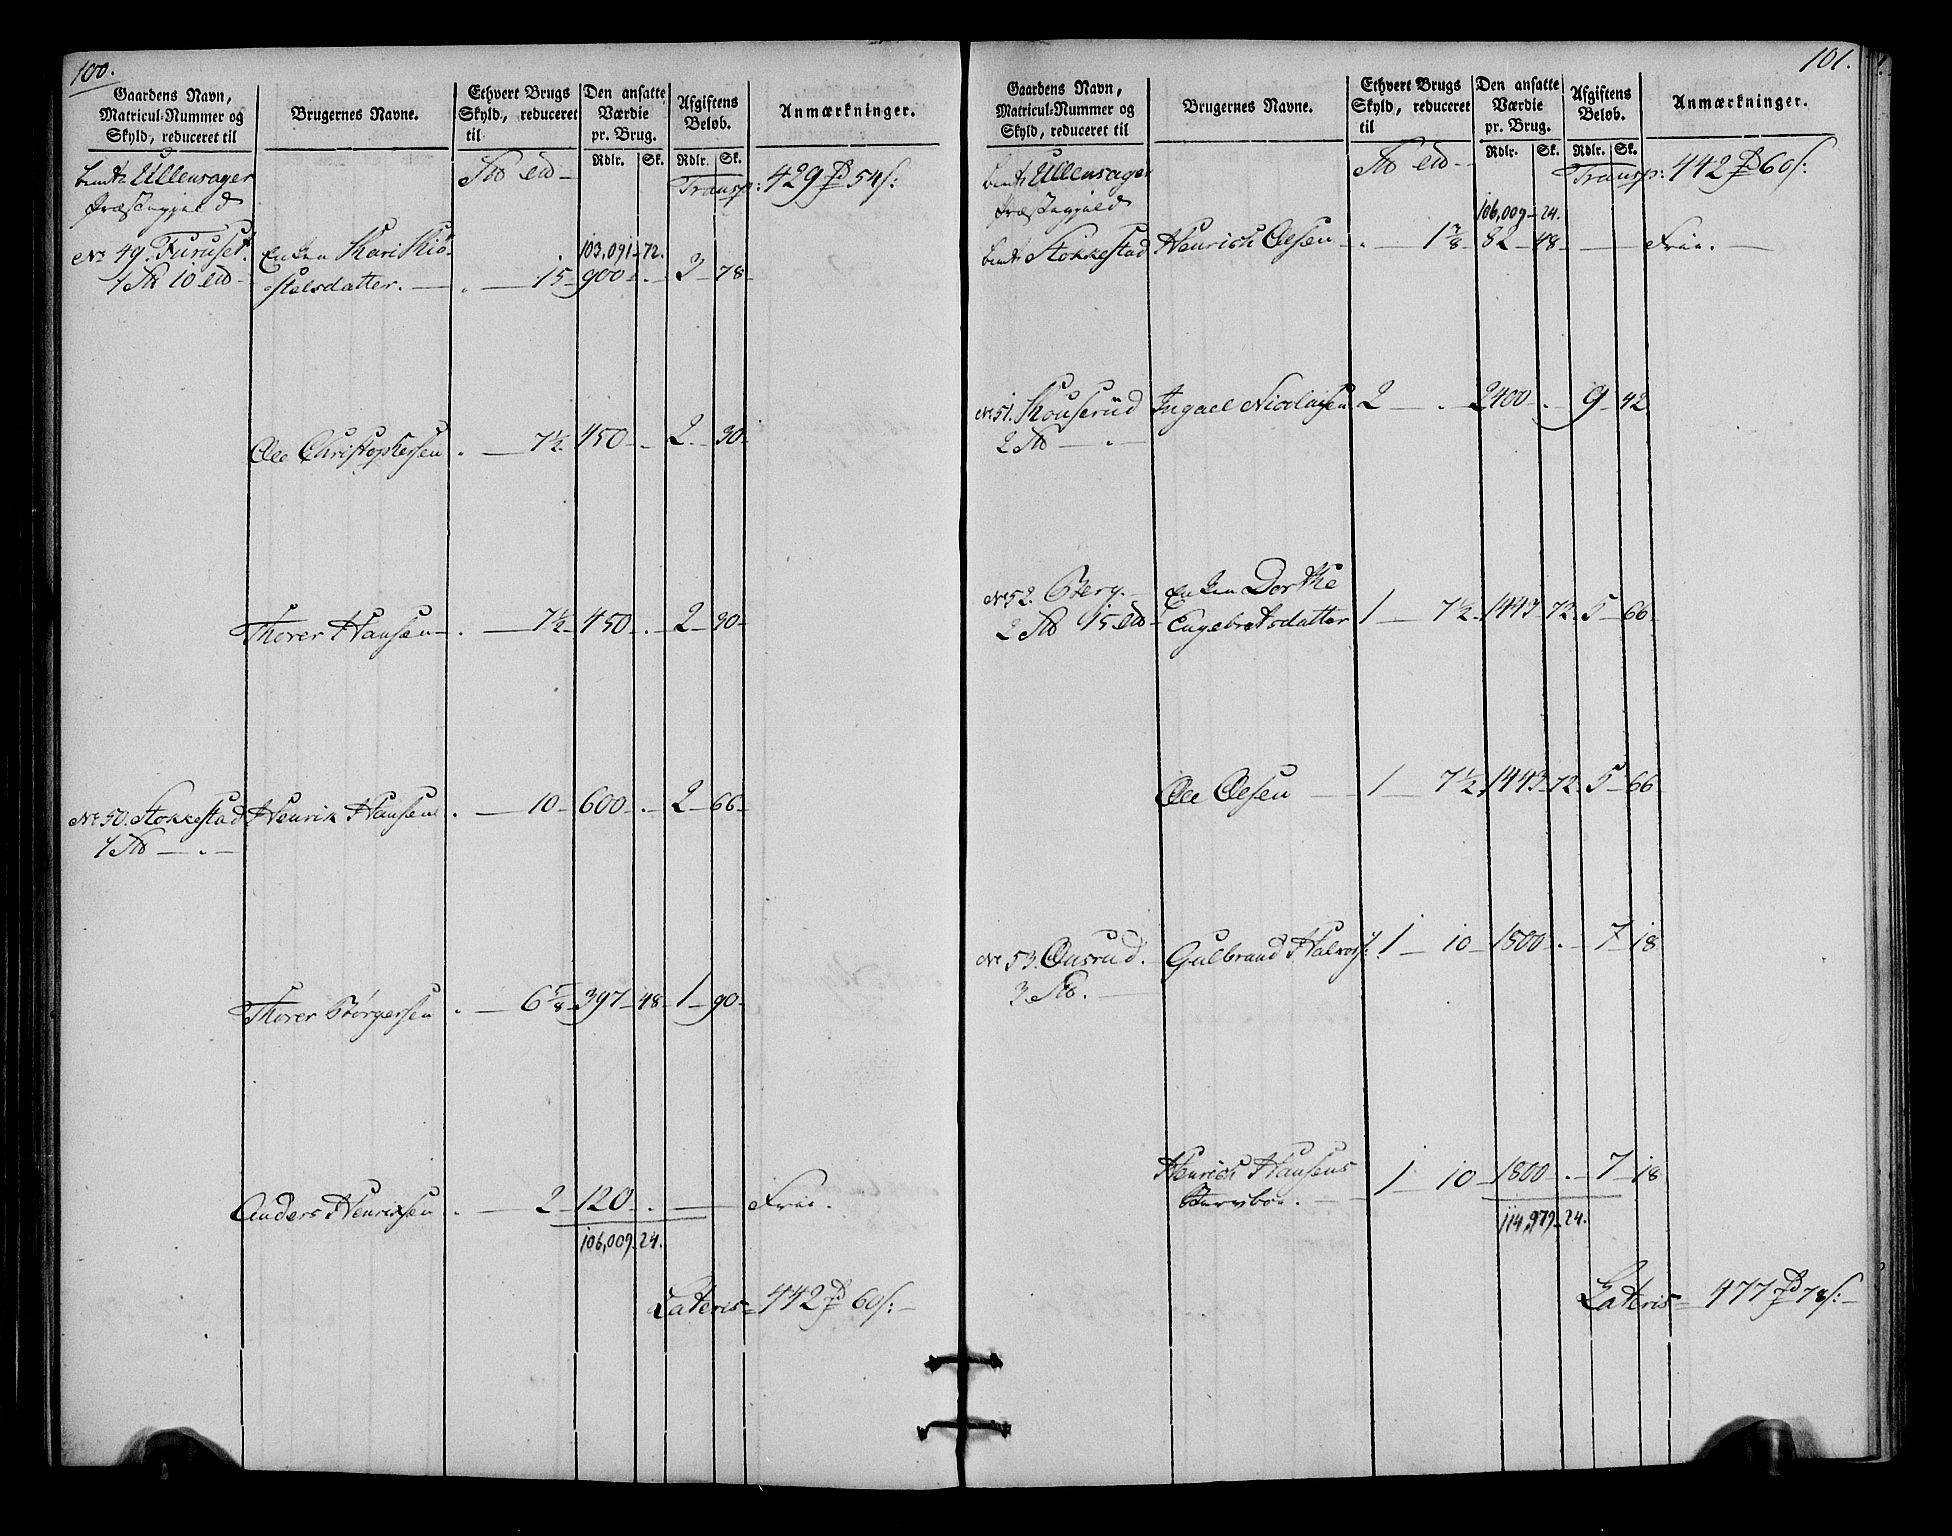 100.
Gaardens Navn, Matricul-Nummer og Skyld, reduceret til
Brugernes Navne.
Ethvert Brugs Skyld, reduceret til
Den ansatte Værdie pr. Brug.
Rdlr. Sk.
Afgiftens Beløb.
Rdlr. Sk.
Anmærkninger.
Ullensager Præstegjæld
Transp: 429 54 s:
103,091 - 72.
No 49. Furuset. Enken Kari Kiø-
1 10 stelsdatter. — . — 15 - 900 - . - 3 - 78 -
Ole Christophersen . — 7½ 450 - . 2. - 30 -
Thorer Hansen - . — 7½ - 450 - . - 2 - 30 -
No 50. Stokkestad Henrik Hansen . — 10 - 600 - . - 2 - 66 -
1 — . —
Thorer Børgersen . — 6⅝ - 397 - 48 - 1 - 90 -
Anders Henriksen . — 2 - 120 - . — Frie.
106,009 - 24.
Lateris = 442 60 s: -
101.
Gaardens Navn, Matricul-Nummer og Skyld, reduceret til
Brugernes Navne.
Ethvert Brugs Skyld, reduceret til
Den ansatte Værdie pr. Brug.
Rdlr. Sk.
Afgiftens Beløb.
Rdlr. Sk.
Anmærkninger.
Ullensager Præstegjæld
Transp: 442 60 s:
106,009 - 24.
Stokkestad Henrich Olsen - . — 1⅞ 82 - 48 - — Frie. —
No 51. Kouserud Ingael Nicolaisen 2 — . - 2400 - . - 9 - 42
2 — . —
No 52. Berg. - Enken Dorthe
2 15 Engebretsdatter 1 — 7½ - 1443 - 72 - 5 - 66 -
Ole Olsen — 1 — 7½ 1443 - 72 - 5 - 66
No 53. Onsrud. Gulbrand Halvors: 1 — 10 - 1800 - . - 7 - 18
3 —
Henrich Hansens 1 — 10 - 1800 - . - 7 - 18
114,979 - 24.
Lateris = 477 78 s: -